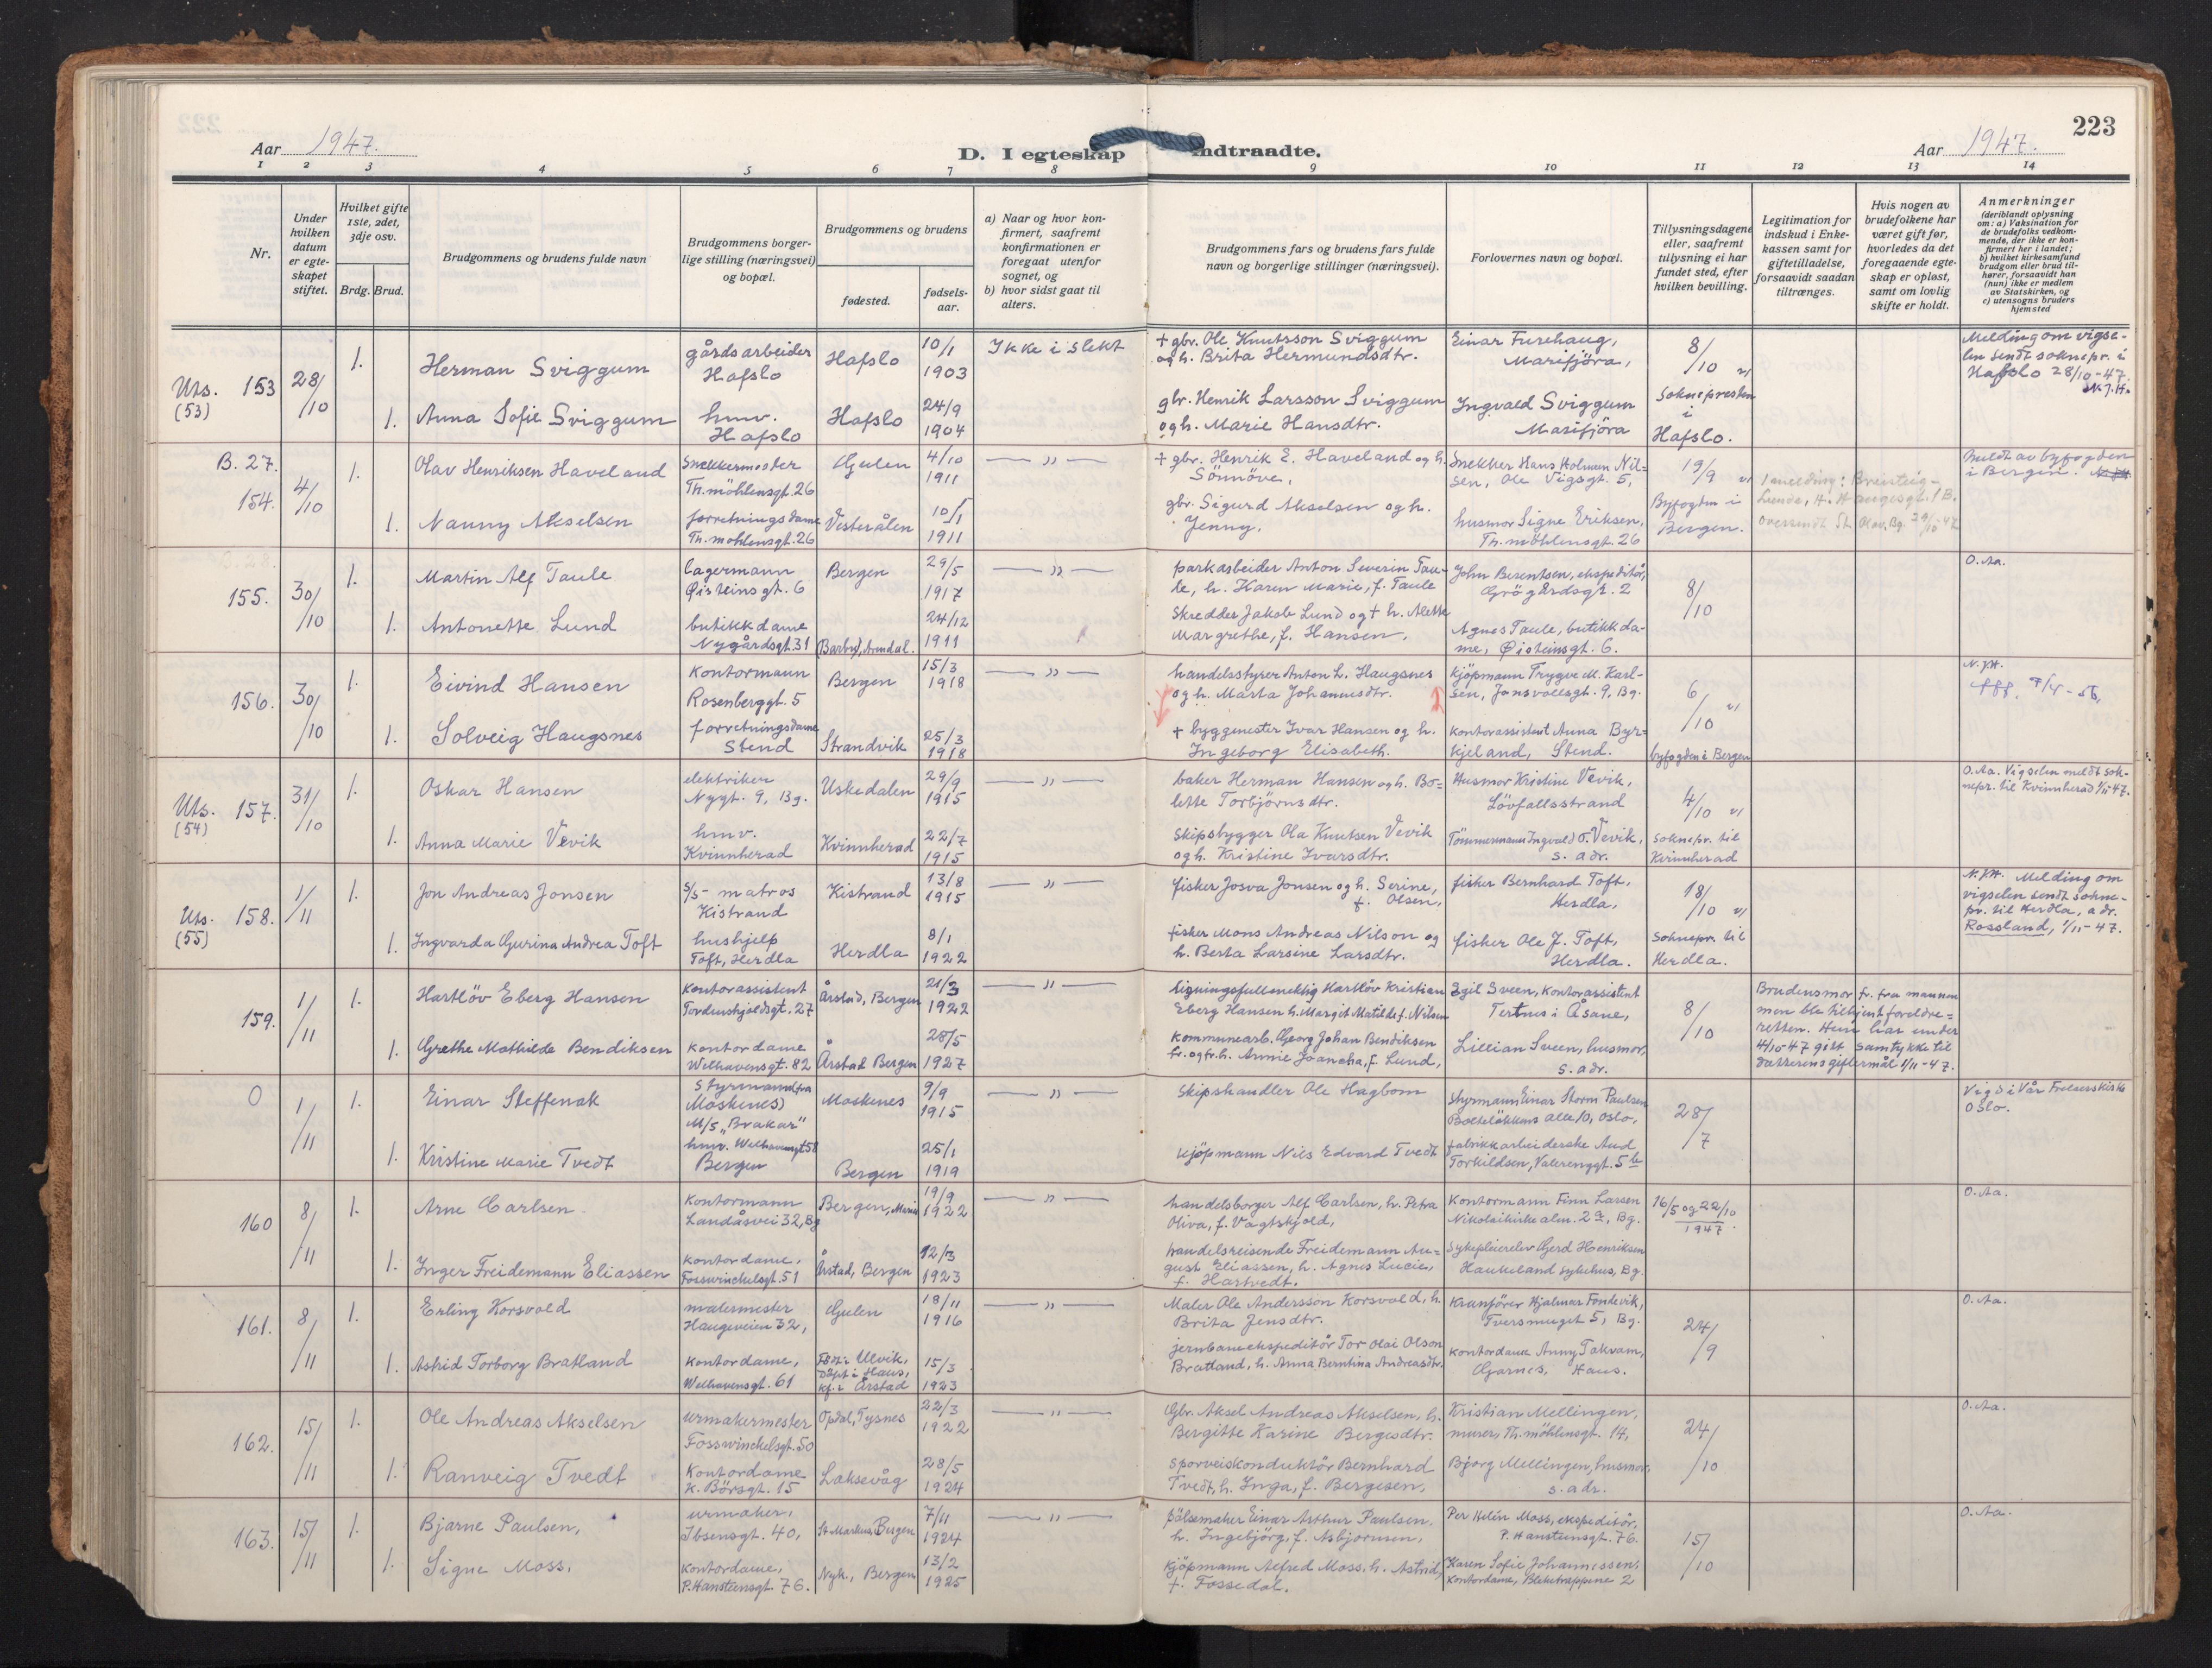 223
Aar 1947.
D. I egteskap indtraadte.
Aar 1947.
1 2 3 4 5 6 7 8 9 10 11 12 13 14
Nr.
Under hvilken datum er egteskapet stiftet.
Hvilket gifte 1ste, 2det, 3dje osv.
Brdg. Brud.
Brudgommens og brudens fulde navn
Brudgommens borgerlige stilling (næringsvei) og bopæl.
Brudgommens og brudens
fødested.
fødselsaar.
a) Naar og hvor konfirmert, saafremt konfirmationen er foregaat utenfor sognet, og
b) hvor sidst gaat til alters.
Brudgommens fars og brudens fars fulde navn og borgerlige stillinger (næringsvei).
Forlovernes navn og bopæl.
Tillysningsdagene eller, saafremt tillysning ei har fundet sted, efter hvilken bevilling.
Legitimation for indskud i Enkekassen samt for giftetilladelse, forsaavidt saadan tiltrænges.
Hvis nogen av brudefolkene har været gift før, hvorledes da det foregaaende egteskap er opløst, samt om lovlig skifte er holdt.
Anmerkninger
(deriblandt oplysning om: a) Vaksination for de brudefolks vedkommende, der ikke er konfirmert her i landet;
b) hvilket kirkesamfund brudgom eller brud tilhører, forsaavidt han (hun) ikke er medlem av Statskirken, og
c) utensogns bruders hjemsted
Uts. (53) 153 28/10 1. Herman Sviggum gårdsarbeider Hafslo Hafslo 10/1 1903 Ikke i slekt + gbr. Ole Knutsson Sviggum og h. Brita Hermundsdtr. Einar Furehaug, Marifjöra, 8/10
Meldingom vigselen sendt soknepr. i Hafslo 28/10-47.
1. Anna Sofie Sviggum hmv. Hafslo Hafslo 24/9 1904 gbr. Henrik Larsson Sviggum og h. Marie Hansdtr. Ingvald Sviggum Marifjöra Soknepresten i Hafslo.
B. 27. 154. 4/10 1. Olav Henriksen Haveland Snekkermester Th. möhlensgt. 26 Gulen 4/10 1911 — " — + gbr. Henrik E. Haveland og h. Sönnöve, Snekker Hans Holmen Nilsen, Ole Vigsgt. 5, 19/9
Meldt av byfogden i Bergen.
1. Nanny Akselsen forretningsdame Th. mohlensgt. 26 Vesterålen 10/1 1911 gbr. Sigurd Akselsen og h. Jenny. husmor Signe Eriksen, Th. möhlensgt. 26 Byfogden i Bergen.
155. 30/10 1. Martin Alf Taule lagermann Øisteinsgt. 6 Bergen 29/5 1917 — " — parkarbeider Anton Severin Taule, h. Karen Marie, f. Taule John Berentsen, ekspeditör, Grögårdsgt. 2 8/10 O. Aa.
1. Antonette Lund butikkdame Nygårdsgt. 31 (Barbu), Arendal. 24/12 1911 Skredder Jakob Lund og + h. Alette Margrethe, f. Hansen, Agnes Taule, butikkdame, Øisteinsgt. 6.
156. 30/10 1. Eivind Hansen kontormann Rosenberggt. 5 Bergen 15/3 1918 — " — handelsstyrer Anton L. Haugsnes og h. Marta Johannesdtr. Kjöpmann Trygve M. Karlsen, Jonsvollsgt. 9, Bg. 6/10
1. Solveig Haugsnes forretningsdame Stend Strandvik 25/3 1918 + byggmester Ivar Hansen og h. Ingeborg Elisabeth. kontorassistent Anna Byrkjeland, Stend. byfogden i Bergen
Uts. (54) 157. 31/10 1. Oskar Hansen elektriker Nygt. 9, Bg. Uskedalen 29/9 1915 — " — baker Herman Hansen og h. Bolette Torbjörnsdtr. Husmor Kristine Vevik, Lövfallsstrand 4/10 O. Aa. Vigselen meldt soknepr. til Kvinnherad 1/11-47.
1. Anna Marie Vevik hmv. Kvinnherad Kvinnherad 22/7 1915 Skipsbygger Ola Knutsen Vevik og h. Kristine Ivarsdtr. Tömmermann Ingvald O. Vevik, s. adr. soknepr. til Kvinnherad
Uts. (55) 158. 1/11 1. Jon Andreas Jonsen S/S- matros Kistrand Kistrand 13/8 1915 — " — fisker Josva Jonsen og h. Serine, f. Olsen, fisker Bernhard Toft, Herdla, 18/10 N. J. H. Melding om vigselen sendt soknepr. til Herdla, adr. Rossland, 1/11-47.
1. Ingvarda Gurina Andrea Toft hushjelp Toft, Herdla Herdla 8/1 1922 fisker Mons Andreas Nilson og h. Berta Larsine Larsdtr. fisker Ole J. Toft, Herdla. Soknepr. til Herdla.
159. 1/11 1. Hartlöv Eberg Hansen kontorassistent Tordenskjoldsgt. 27 Årstad, Bergen 21/3 1922 — " — ligningsfullmektig Hartlöv Kristian Eberg Hansen h. Margit Matilde f. Nilsen Egil Sveen, kontorassistent Tertnes i Åsane, 8/10 Brudens mor fr. fra mannen men ble tilkjent foreldreretten. Hun har under 4/10-47 gitt samtykke til datterens giftermål 1/11-47.
1. Grethe Mathilde Bendiksen kontordame Welhavensgt. 82 Årstad Bergen 28/5 1927 kommunearb. Georg Johan Bendiksen fr. og fr. h. Annie Joancha, f. Lund, Lillian Sveen, husmor, s. adr.
0 1/11 1. Einar Steffenak Styrmann (fra Moskenes) M/S „Brakar" Moskenes 9/9 1915 — " — Skipshandler Ole Hagbom styrmann Einar Storm Paulsen Oslo. 28/7 Vigd i Vår Frelserskirke Oslo.
1. Kristine Marie Tvedt hmv. Welhavensgt 58 Bergen Bergen 25/1 1919 Kjöpmann Nils Edvard Tvedt fabrikkarbeiderske Aud Torkildsen, Valerenggt. 5 b
160 8/11 1. Arne Carlsen kontormann Landåsvei 32, Bg Bergen, Marie 19/9 1922 — " — handelsborger Alf Carlsen, h. Petra Oliva, f. Vagtskjold, kontormann Finn Larsen Nikolaikirkealm. 2a, Bg. 16/5 og 22/10 1947. O. Aa.
1. Inger Freidemann Eliassen kontordame, Fosswinckelsgt. 51 Årstad, Bergen 12/3 1923 handelsreisende Freidemann August Eliassen, h. Agnes Lucie, f. Hartvedt. Sykepleierelev Gerd Henriksen Haukeland sykehus, Bg.
161. 8/11 1. Erling Korsvold malermester Haugeveien 32, Gulen 18/11 1916 — " — Maler Ole Andersson Korsvold, h. Brita Jensdtr. Kranförer Hjalmar Fondevik, Tversmuget 5, Bg. 24/9 O. Aa.
1. Astrid Torborg Bratland kontordame, Welhavensgt. 61 Född i Ulvik, Döpt i Haus, kf. i Årstad 15/3 1923 jernbaneekspeditör Tor Olai Olson Bratland, h. Anna Berntina Andreasdtr. kontordame Anny Takvam, Garnes, Haus.
162. 15/11 1. Ole Andreas Akselsen urmakermester Fosswinckelsgt. 50 Opdal, Tysnes 22/3 1922 — " — Gbr. Aksel Andreas Akselsen, h. Bergitte Karine Bergesdtr. Kristian Mellingen, murer, Th. möhlensgt. 14, 24/10 O. Aa.
1. Ranveig Tvedt Kontordame K. Börsgt. 15 Laksevåg 28/5 1924 Sporveiskonduktör Bernhard Tvedt, h. Inga, f. Bergesen, Bjorg Mellingen, husmor, s. adr.
163. 15/11 1. Bjarne Paulsen, urmaker, Ibsensgt. 40, St Markus, Bergen 7/11 1924 — " — pölsemaker Einar Arthur Paulsen, h. Ingebjörg, f. Asbjornsen, Per Helin Moss, ekspeditör, P. Hanstensgt. 76. 15/10 O. Aa.
1. Signe Moss. Kontordame, P. Hanstensgt. 76. Nyk., Bergen 13/2 1925 Kjöpmann Alfred Moss, h. Astrid, f. Fossedal. Karen Sofie Johannessen, Kontordame, Bleketrappene 2